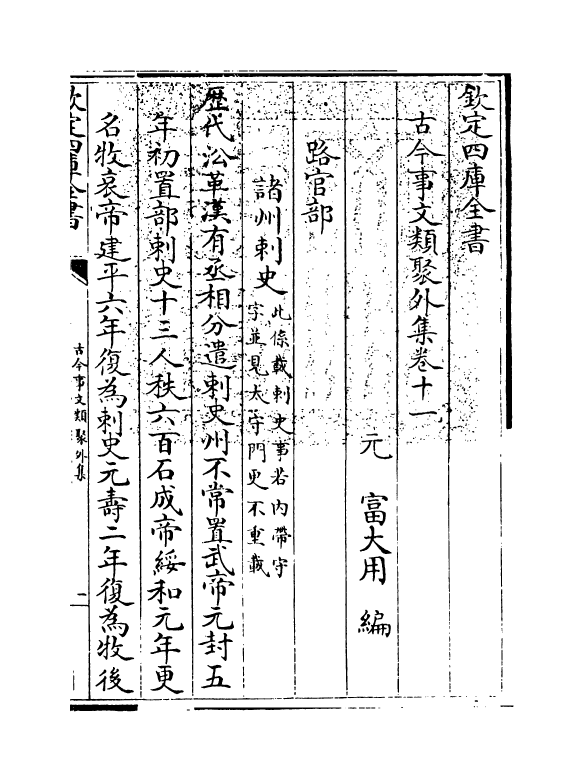 欽定四庫全書
古今事文類聚外集卷十一
元　富大用　編
路官部
諸州刺史此條載刺史事若内帶守
字並見太守門更不重載
歴代沿革漢有丞相分遣刺史州不常置武帝元封五
年初置部刺史十三人秩六百石成帝綏和元年更
名牧哀帝建平六年復為刺史元壽二年復為牧後
欽定四庫全書
古今事文類聚外集
二